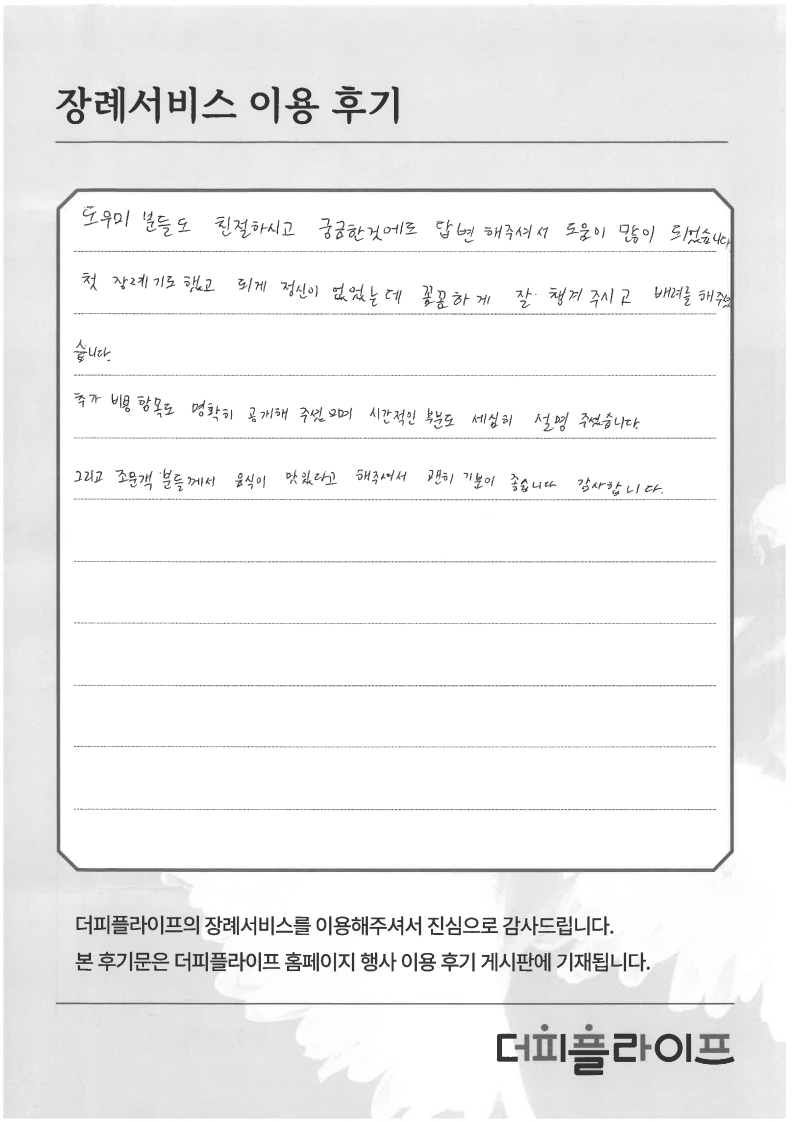 장례서비스 이용 후기
도우미 분들도 친절하시고 궁금한것에도 답변 해주셔서 도움이 많이 되었습니다
첫 장례기도 했고 되게 정신이 없었는데 꼼꼼하게 잘 챙겨 주시고 배려를 해주셨
습니다.
추가 비용 항목도 명확히 공개해 주셨으며 시간적인 부분도 세심히 설명 주셨습니다.
그리고 조문객 분들께서 음식이 맛있다고 해주셔서 괜히 기분이 좋습니다 감사합니다.
더피플라이프의 장례서비스를 이용해주셔서 진심으로 감사드립니다.
본 후기문은 더피플라이프 홈페이지 행사 이용 후기 게시판에 기재됩니다.
더피플라이프